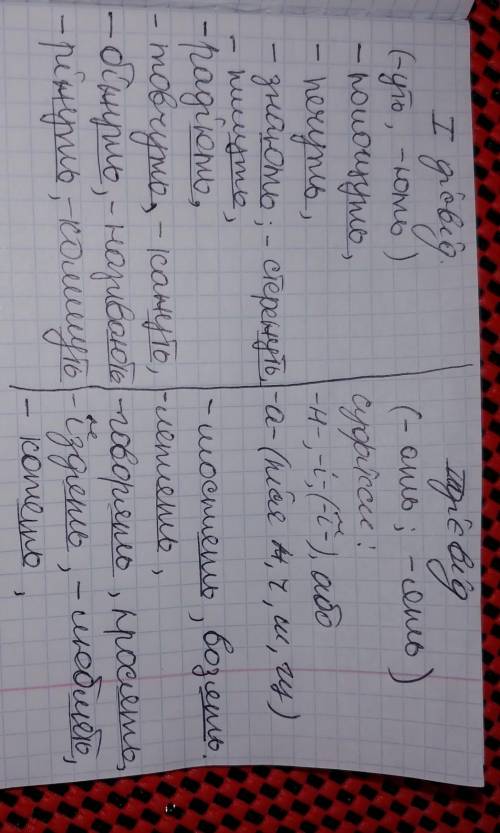 І дієвід.
(-уть, -ють)
- полощуть,
- печуть,
- знають; - стережуть,
- пишуть,
- радіють,
- товчуть, - кажуть,
- біжуть, - називають
- ріжуть, - колишуть
ІІ дієвід
(-ать; -ять)
суфікси:
-и-, -і-, (-ї-), або
-а- (після ж, ч, ш, щ)
- мостять, возять.
- летять,
- говорять, просять,
- їздять, - люблять,
- котять,